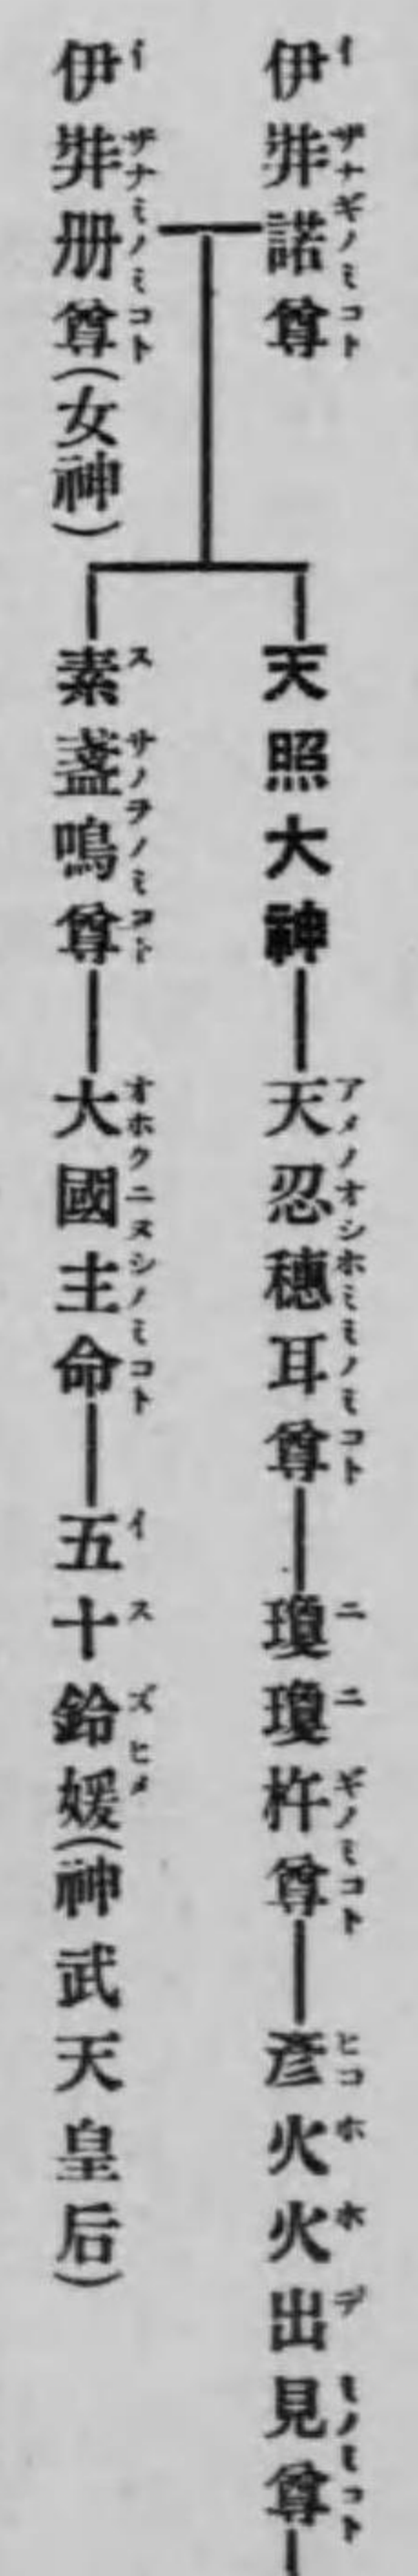 伊弉諾尊
イザナギノミコト
伊弉册尊(女神)
イザナミノミコト
天照大神
天忍穗耳尊
アメノオシホミミノミコト
瓊瓊杵尊
ニニギノミコト
彦火火出見尊
ヒコホホデミノミコト
素盞嗚尊
スサノヲノミコト
大國主命
オホクニヌシノミコト
五十鈴媛(神武天皇后)
イスズヒメ